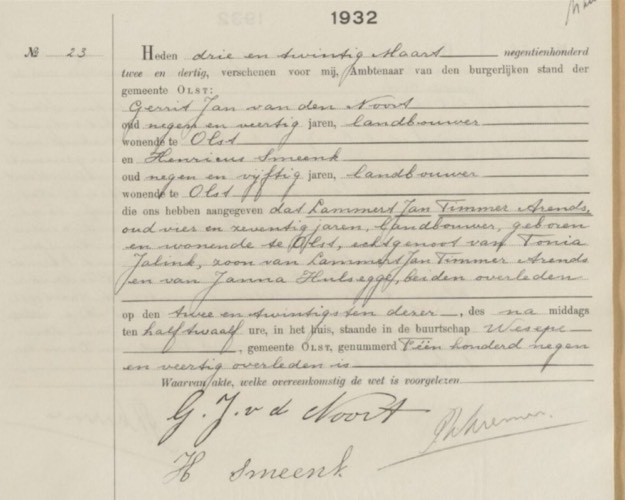 1932
№ 23
Heden drie en twintig Maart negentienhonderd
twee en dertig, verschenen voor mij, Ambtenaar van den burgerlijken stand der
gemeente OLST:
Gerrit Jan van den Noort
oud negen en veertig jaren, landbouwer
wonende te Olst
en Henricus Smeenk
oud negen en vijftig jaren, landbouwer
wonende te Olst
die ons hebben aangegeven dat Lammert Jan Timmer Arends,
oud vier en zeventig jaren, landbouwer, geboren
en wonende te Olst, echtgenoot van Tonia
Jalink, zoon van Lammert Jan Timmer Arends
en van Janna Hulsegge, beiden overleden
op den twee en twintigsten dezer, des na middags
ten half twaalf ure, in het huis, staande in de buurtschap Wesepe
, gemeente OLST, genummerd Eén honderd negen
en veertig overleden is
Waarvan akte, welke overeenkomstig de wet is voorgelezen.
G. J. v d Noort
H Smeenk